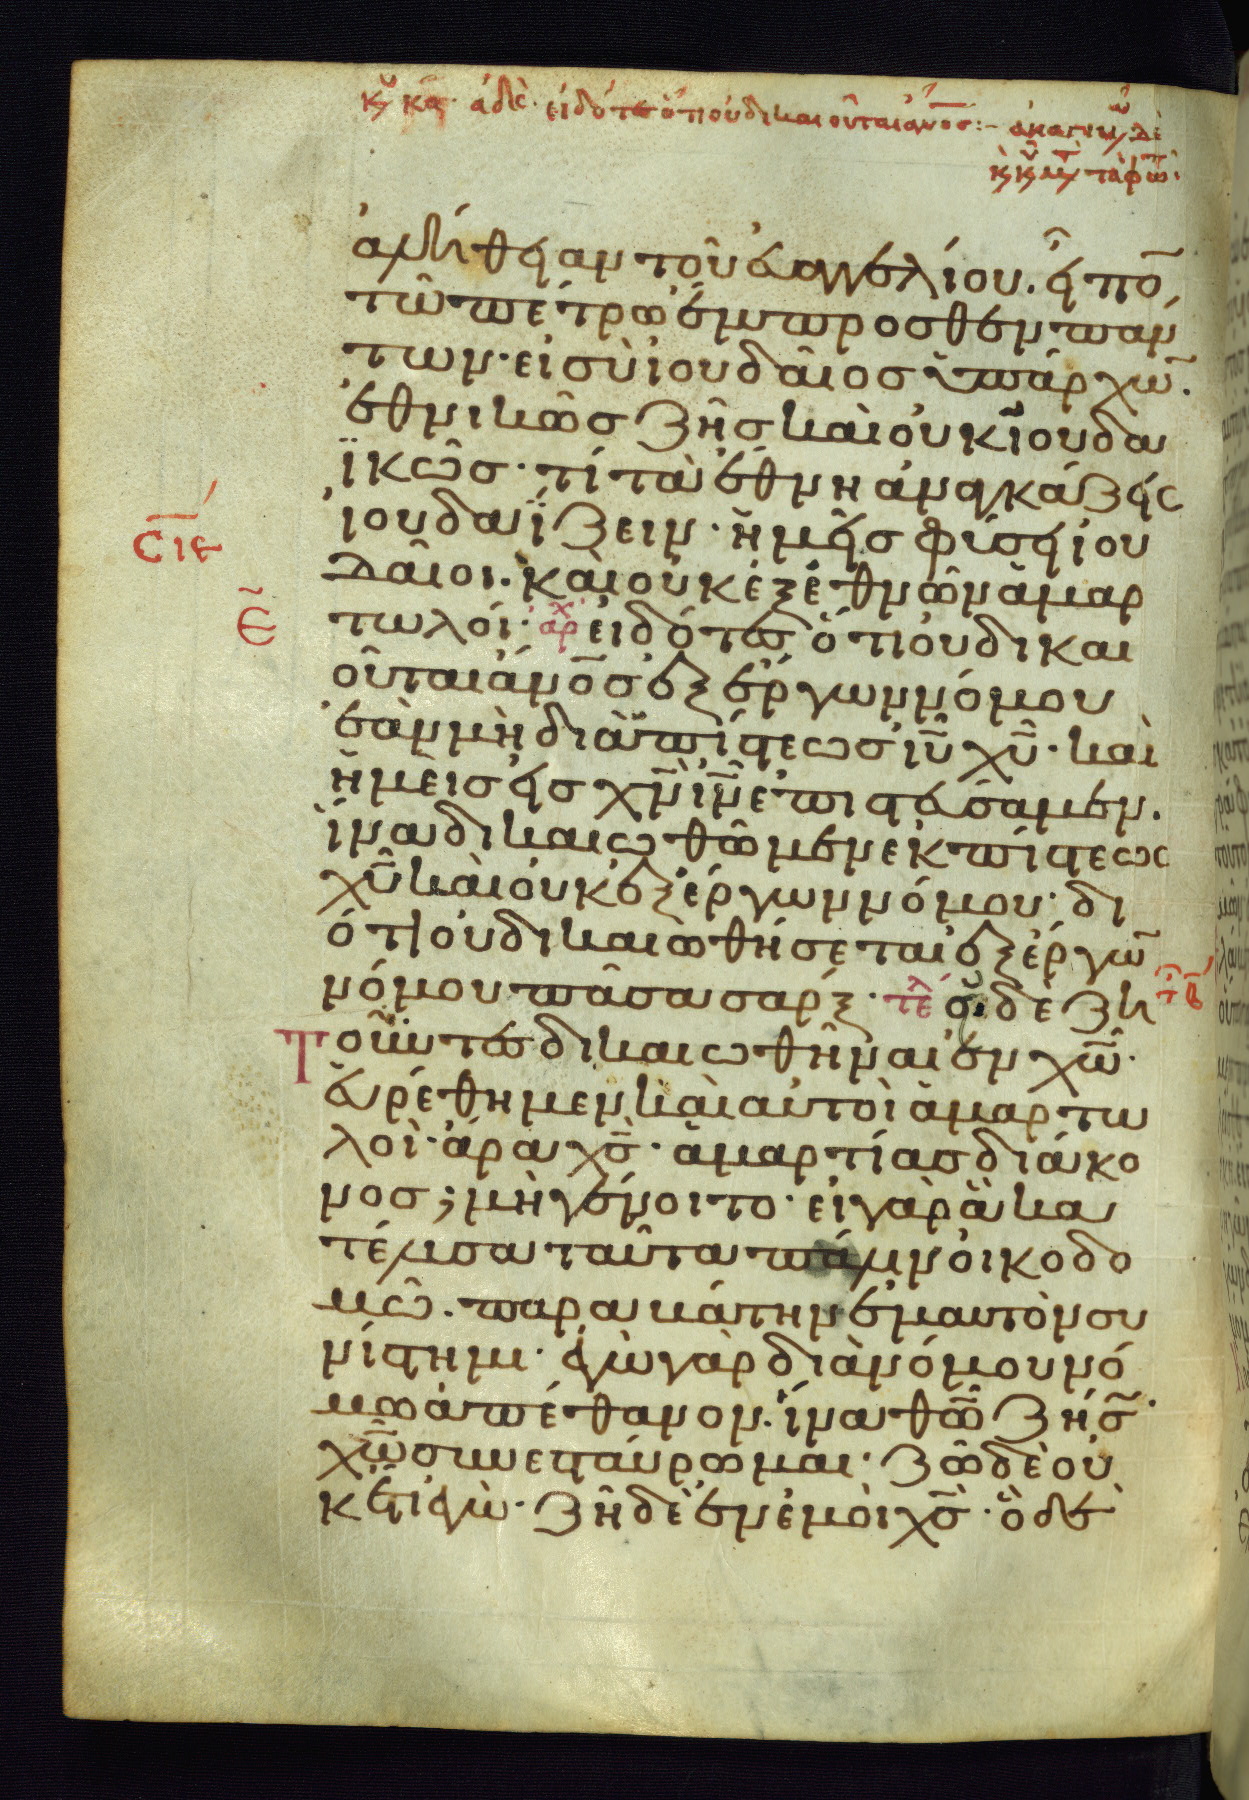 κυ κα· ἀδε· εἰδότες ὅτι οὐ δικαιοῦται ἄνος:–
ἀλήθειαν τοῦ εὐαγγελίου. εἶπον
τῶ πέτρω ἔμπροσθεν παν
των· εἰ σὺ ἰουδαῖος ὑπάρχων̄.
ἐθνικῶς ζῆς καὶ οὐκ ἰουδα
ϊκῶς· τί τὰ ἔθνη ἀναγκάζεις
ἰουδαΐζειν· ἡμεῖς φύσει ἰου
δαῖοι. καὶ οὐκ ἐξ ἐθνῶν ἁμαρ
CΙΕ
Ε
τωλοί· ἀρχ εἰδότες ὅτι οὐ δικαι
οῦται ἄνος ἐξ ἔργων νόμου
ἐὰν μὴ διὰ πίστεως ἰυ χυ· καὶ
ἡμεῖς εἰς χν ἰν ἐπιστεύσαμεν.
ἵνα δικαιωθῶμεν ἐκ πίστεως
χυ καὶ οὐκ ἐξ ἔργων νόμου· δι
ότι οὐ δικαιωθήσεται ἐξ ἔργων̄
νόμου πᾶσα σάρξ· τελ εἰ δὲ ζη
τοῦντες δικαιωθῆναι ἐν χω·
εὑρέθημεν καὶ αὐτοὶ ἁμαρτω
λοὶ· ἆρα χς· ἁμαρτίας διάκο
νος; μὴ γένοιτο· εἰ γὰρ ἃ κα
τέλυσα ταῦτα πάλιν οἰκοδο
μῶ. παραβάτην ἐμαυτὸν συ
νίστημι· ἐγὼ γὰρ διὰ νόμου νό
μω ἀπέθανον. ἵνα θω ζήσω.
χω συνεσταύρωμαι· ζῶ δὲ οὐ
κέτι ἐγὼ· ζῆ δὲ ἐν ἐμοὶ χς· ὃ δὲ